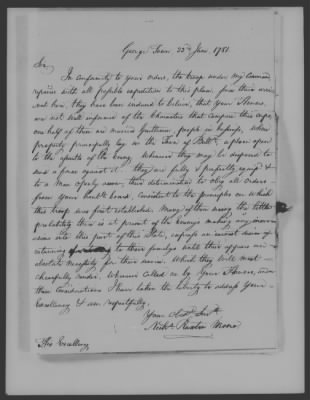 George Town 22d Jany 1781
Sir,
In conformity to your orders, the troop under my Command
repaired with all possible expedition to this place from their arri-
val here, they have been induced to believe, that your Honors,
are not well informed of the Characters that compose this corps
one half of them are married Gentlemen, people in business, whose
property principally lay in the Town of Balte. a place open
to the assaults of the Enemy, whenever they may be disposed to
send a force against it. they are fully & perfectly equipt &
to a Man openly avow, their determination to obey all orders
from your Honble board, consistent to the principles on which
this troop was first established. Many of them among the
there is at present of the enemys making any
into this part of the State, express an earnest desire of
returning to their familys until their affairs are
absolute necessity for their service. Which they will most
chearfully render, whenever called on by your Honors, under
these considerations I have taken the liberty to address Your
Excellency & am respectfully.
Your Obdt. Servt.
Nichs. Ruxton Moore
His Excellency